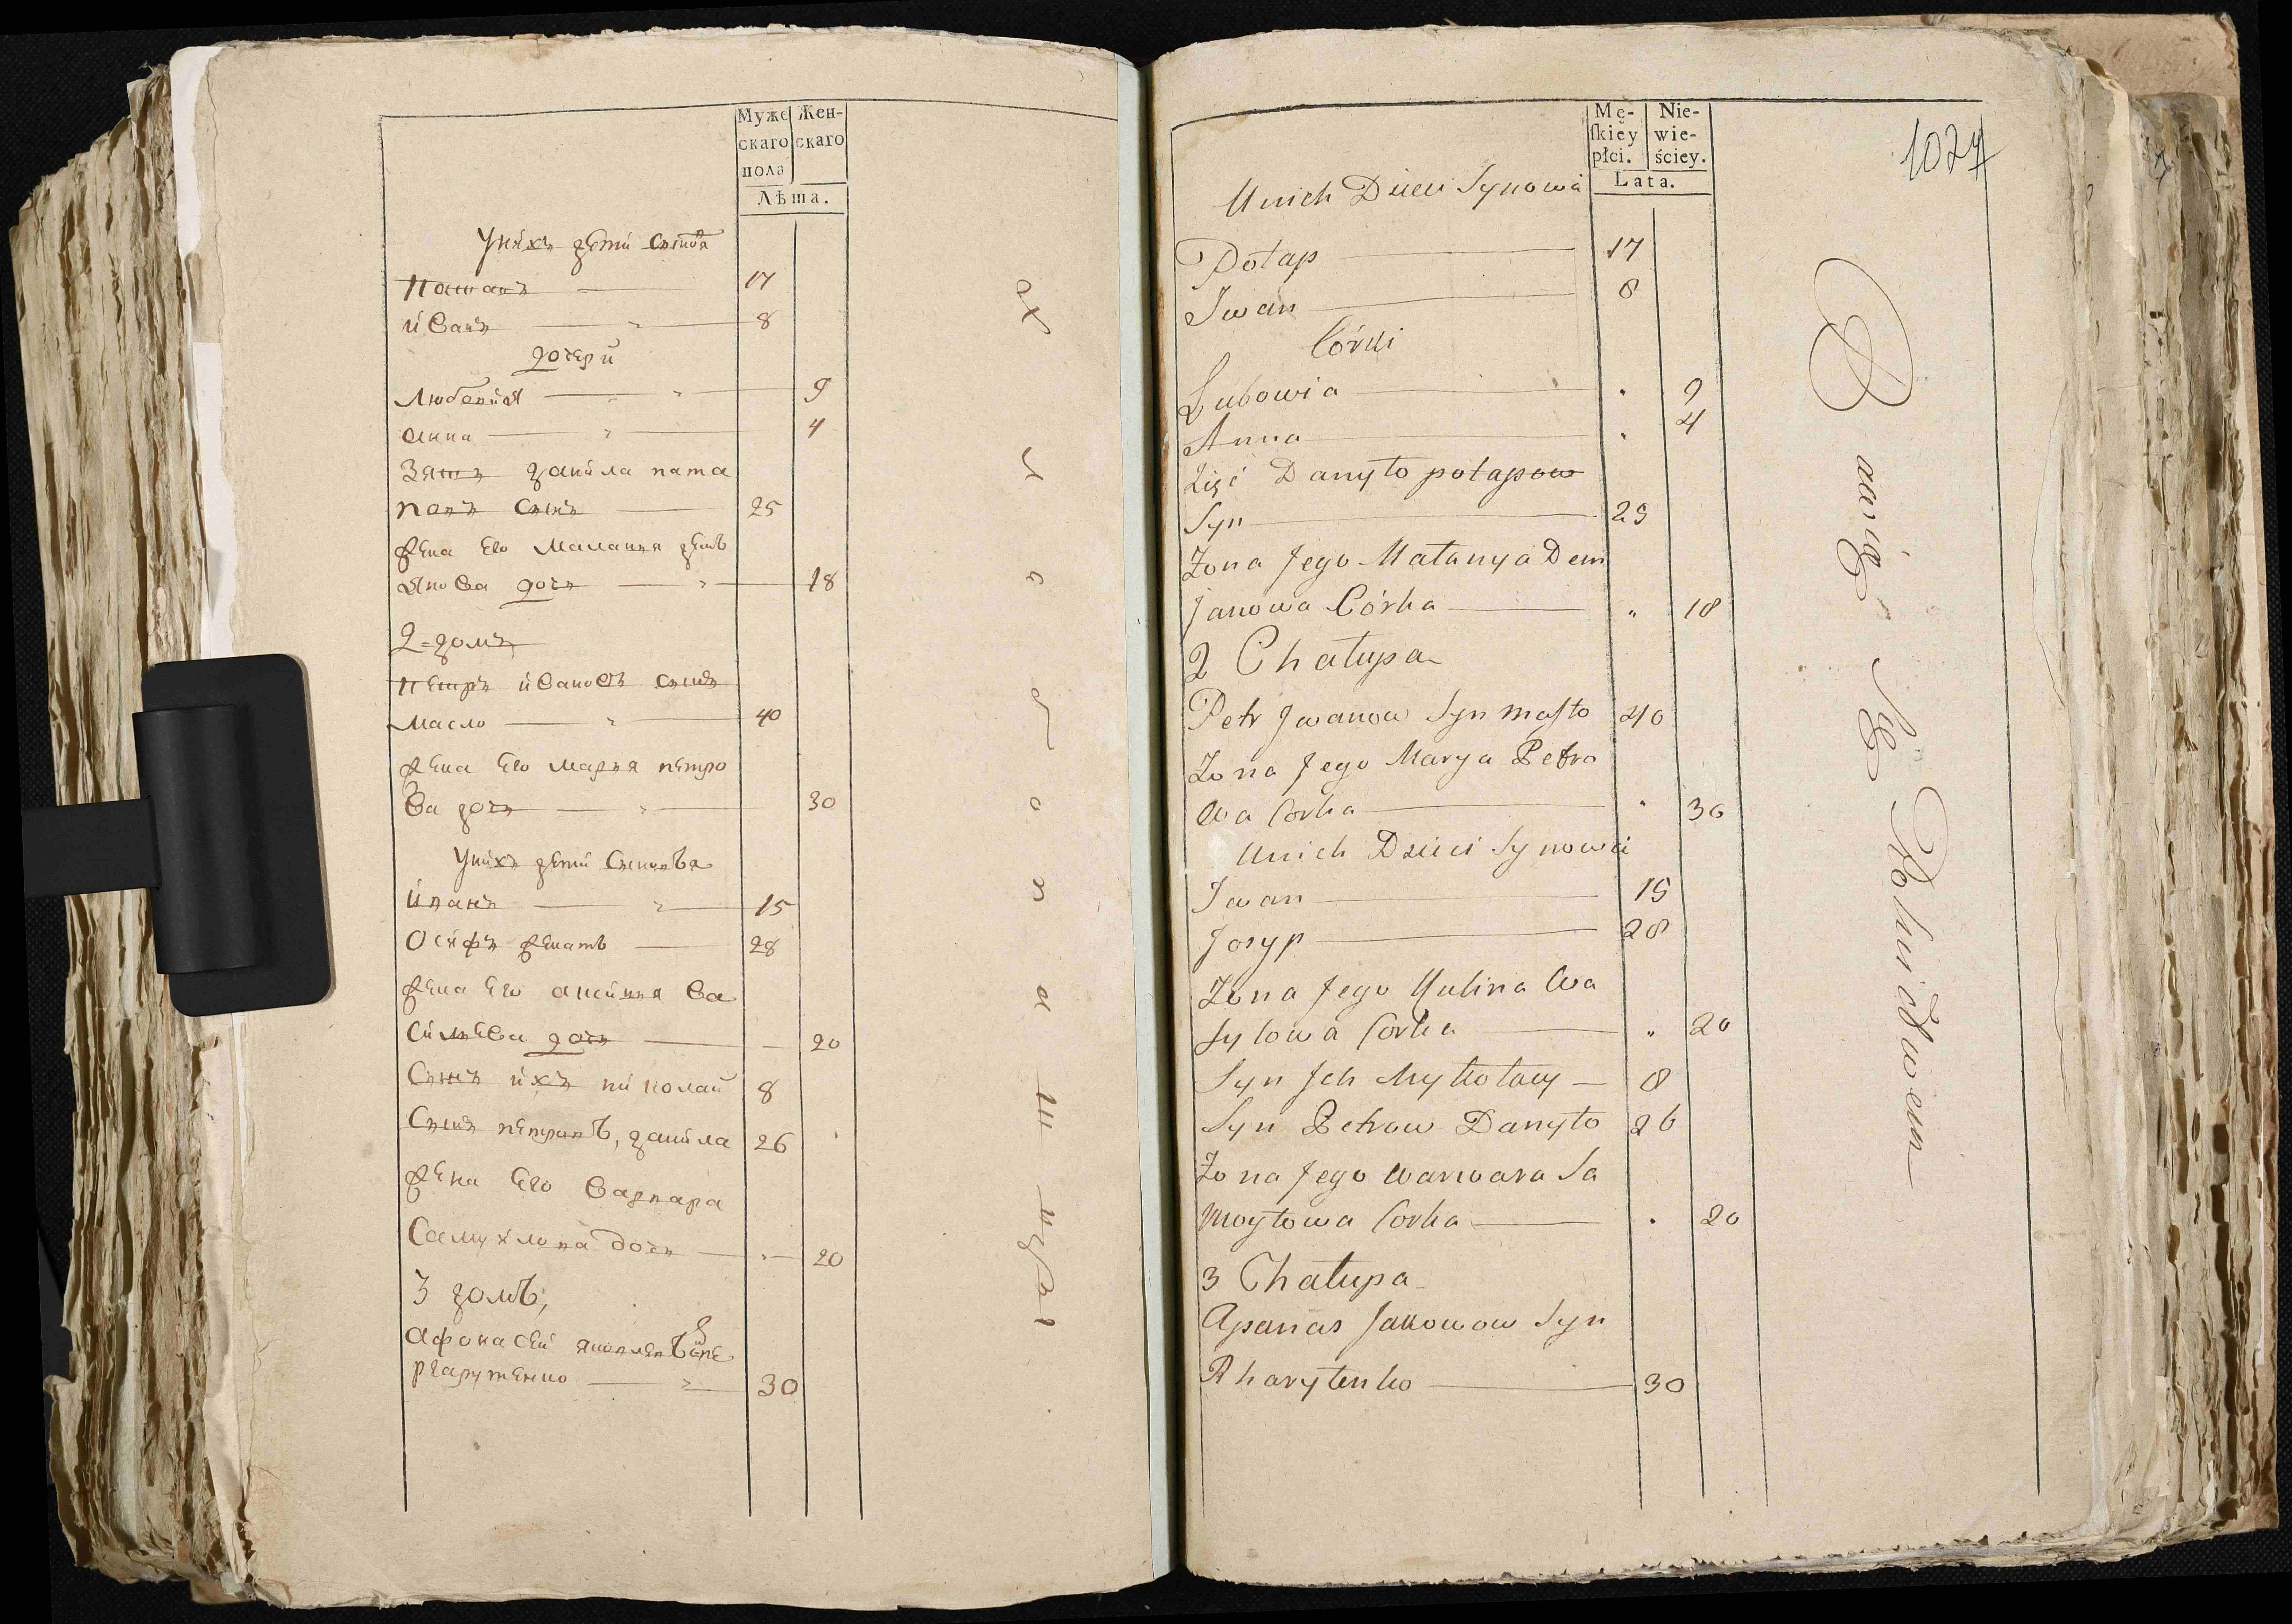 Муже
скаго
пола
Жен-
скаго
Лѣта.
Унихъ дети сынова
Патапъ 17
иванъ 8
дочери
Любовия 9
анна 4
Зять данила пата
повъ сынъ 25
жена его маланья демь
янова дочь 18
2=домъ
петръ ивановъ сынъ
масло 40
жена его марья петро
ва дочь 30
Унихъ дети сыновья
иванъ 15
Осифъ женатъ 28
жена его акилина ва
сильева дочь 20
Сынъ ихъ николай 8
Сынъ петровъ, данила 26
жена его варвара
Самуилова дочь 20
3 домъ,
афонасей яковлевъ
30
Mę-
skiey
płci.
Nie-
wie-
ściey.
Lata.
1027
Unich Dzieci Synowia
Potap 17
Iwan 8
Córki
Lubowia " 9
Anna " 4
Zięć Danyło potapow
Syn 25
Zona Jego Małanya Dem
janowa Córka " 18
2 Chałupa
Petr Jwanow Syn masło 40
Zona Jego Marya Petro
wa Corka " 30
Unich Dzieci Synowie
Iwan 15
Josyp 28
Zona Jego Kulina Wa
sylowa Corka " 20
Syn Jch Mykołacy 8
Syn Petrow Danyło 26
Zona Jego Warwara Sa
moyłowa Corka " 20
3 Chałupa
Apanas Jakowow Syn
Rharytenko 30